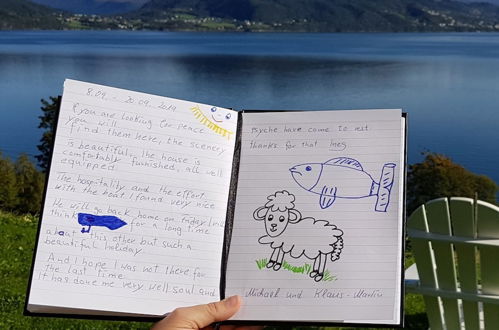 8.09. - 20.09.2019
If you are looking for peace
you will
find them here, the scenery
is beautiful, the house is
comfortable furnished, all well
equipped.
The hospitality and the effort
with the boat I found very nice
We will go back home on friday
think for a long time
about this other but such a
beautiful holiday
And I hope I was not there for
the last time
It has done me very well soul and
Psyche have come to rest
thanks for that
Michael und Klaus-Martin